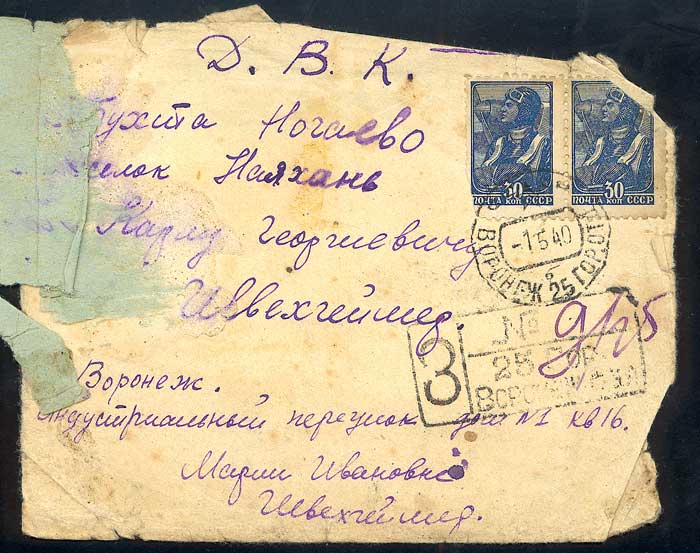 Д. В. К.
Бухта Ногаево
селок Наяхань
Карлу Георгиевичу
Швехгеймед.
30 30
ПОЧТА КОП СССР ПОЧТА КОП СССР
-1 5 40
ВОРОНЕЖ 25 ГОРОТД
З №
25 ГОР
Воронеж.
Индустриальный переулок дом №1 кв 16.
Марии Ивановне
Швехгеймед.